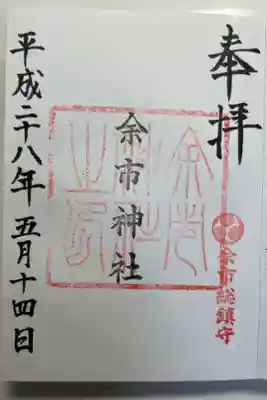 奉拝
余市総鎮守
余市神社
余市神社之印
平成二十八年五月十四日